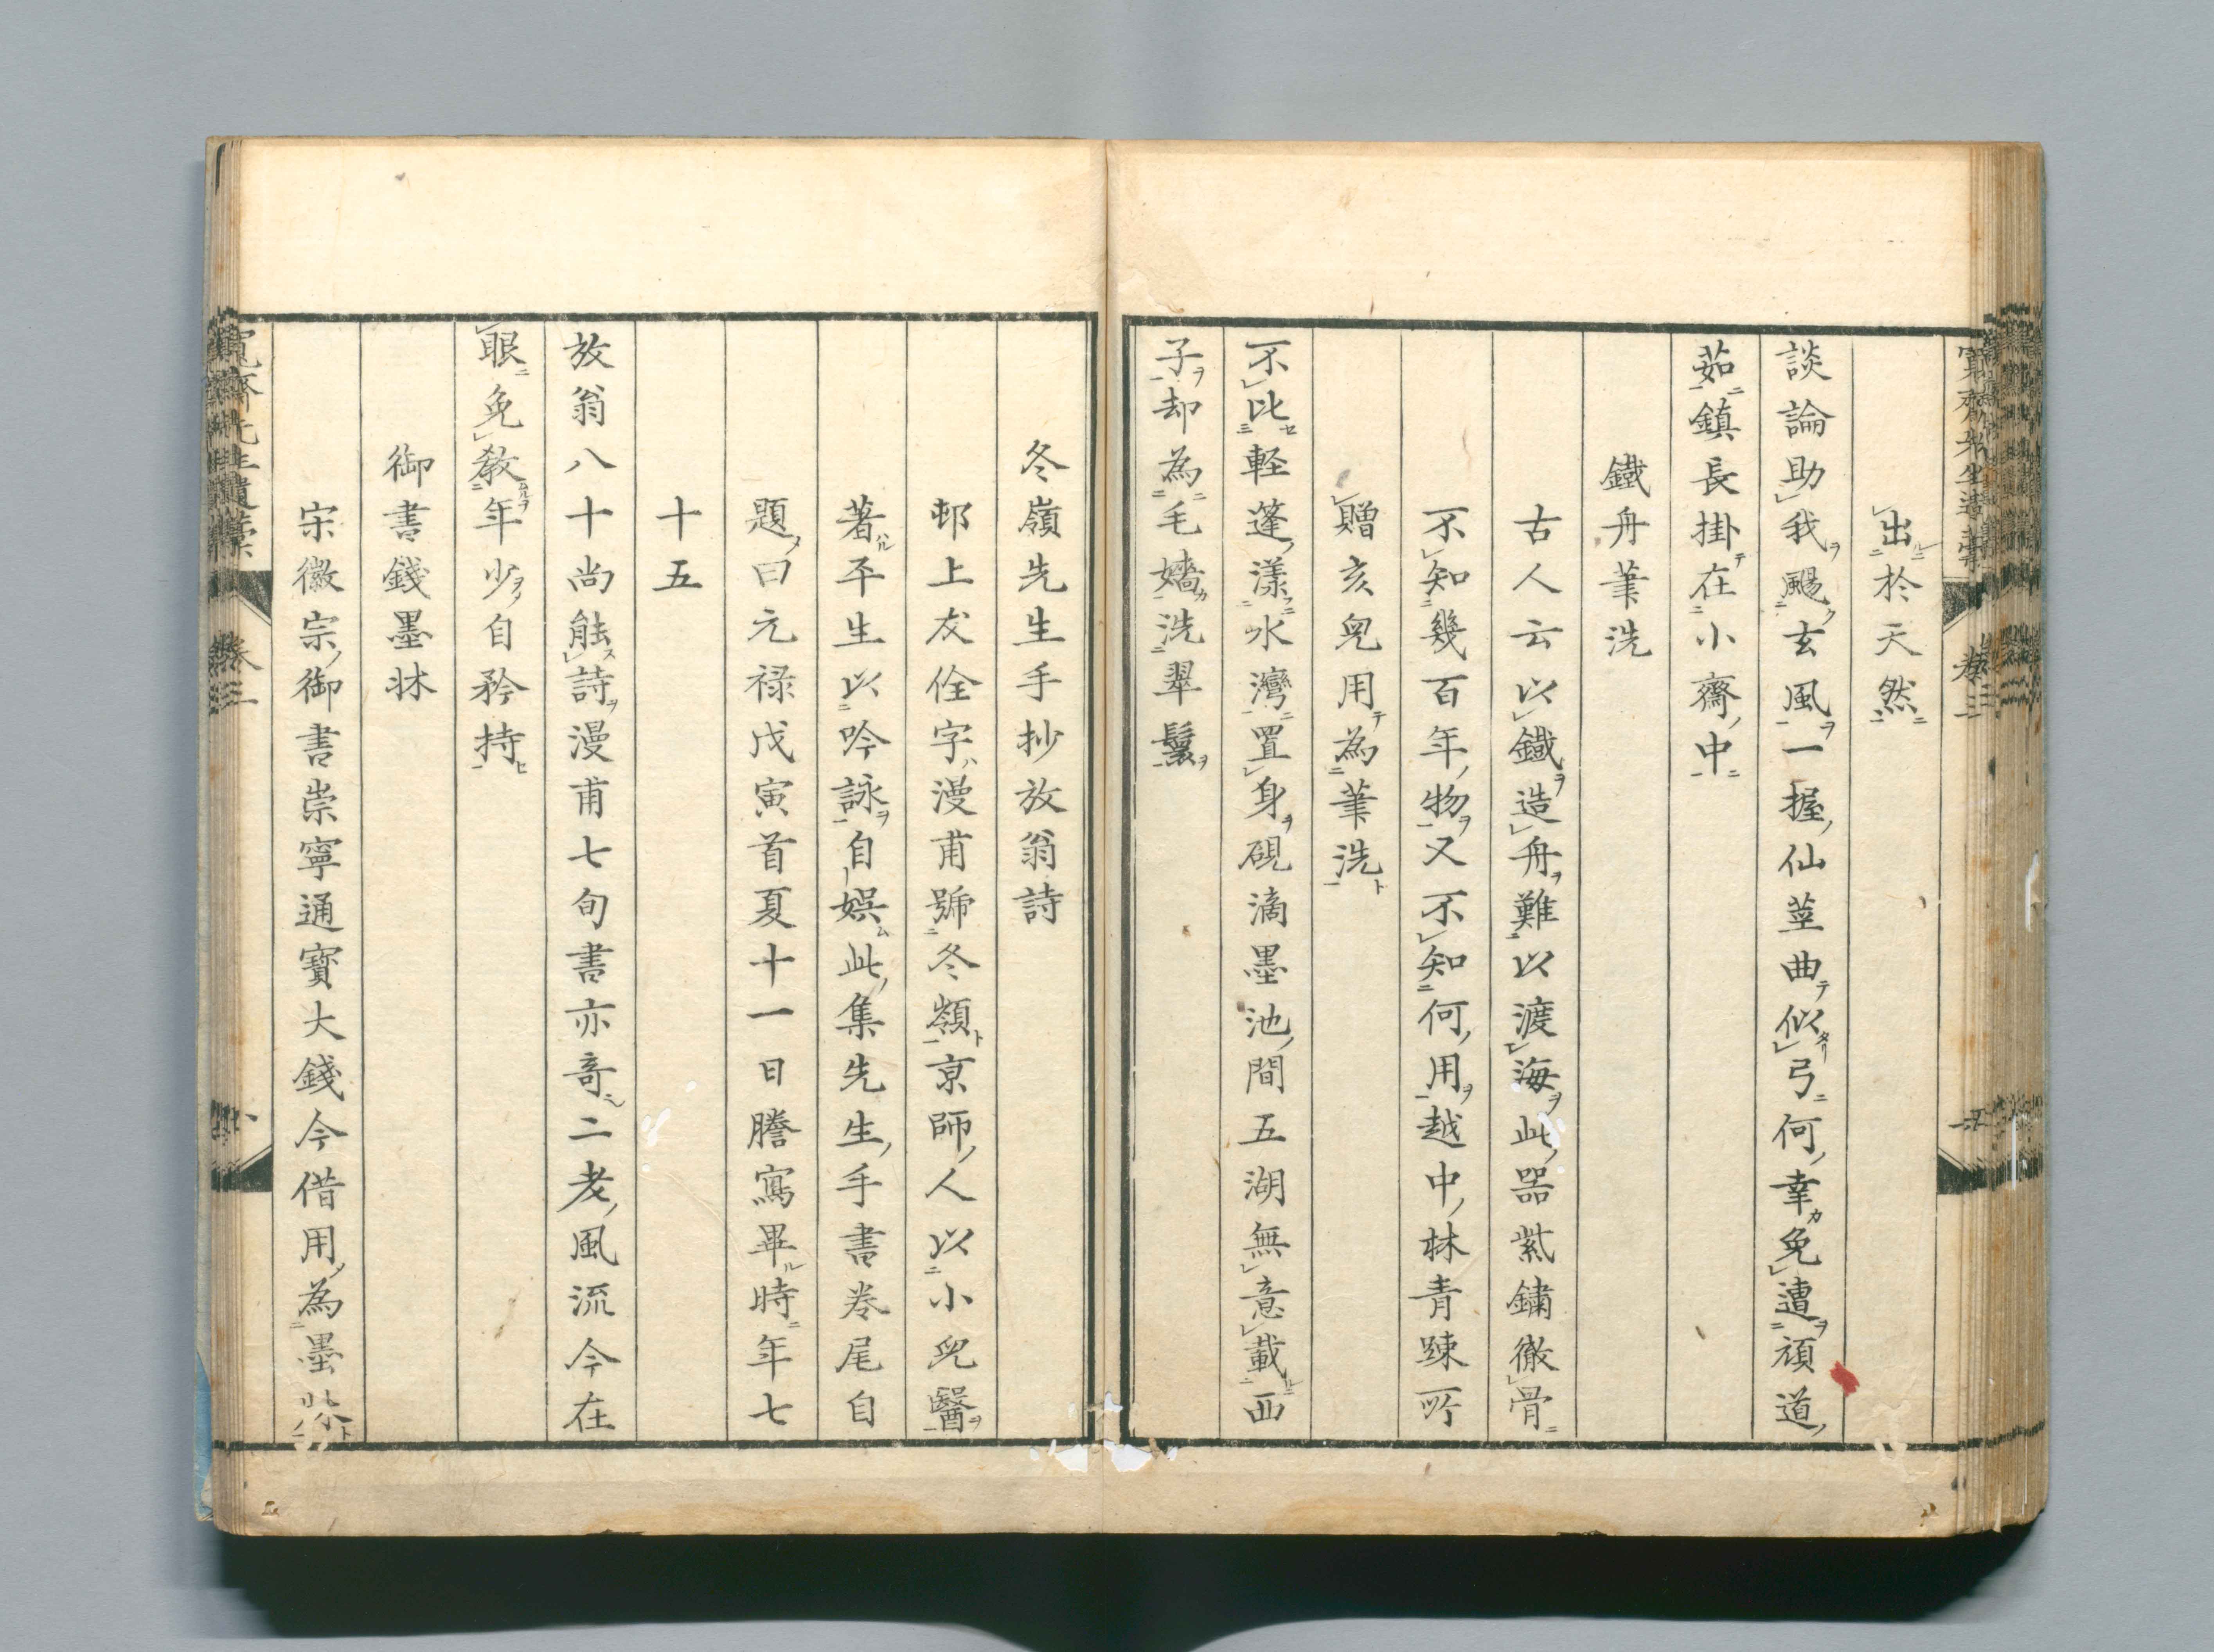 出於天然
談論助我颺玄風一握仙莖曲似弓何幸免遭頑道
茹鎮長掛在小齋中
鐵舟筆洗
古人云以鐵造舟難以渡海此器紫鏽徹骨
不知幾百年物又不知何用越中林青踈所
贈亥兒用為筆洗
不比輕蓬漾水灣置身硯滴墨池間五湖無意載西
子却為毛嬙洗翠鬟
冬嶺先生手抄放翁詩
邨上友佺字漫甫號冬嶺京師人以小兒醫
著平生以吟詠自娯此集先生手書卷尾自
題曰元禄戊寅首夏十一日謄寫畢時年七
十五
放翁八十尚能詩漫甫七旬書亦奇二老風流今在
眼免教年少自矜持
御書錢墨牀
宋徽宗御書崇寧通寶大錢今借用為墨牀
寬齋先生遺稾
卷三